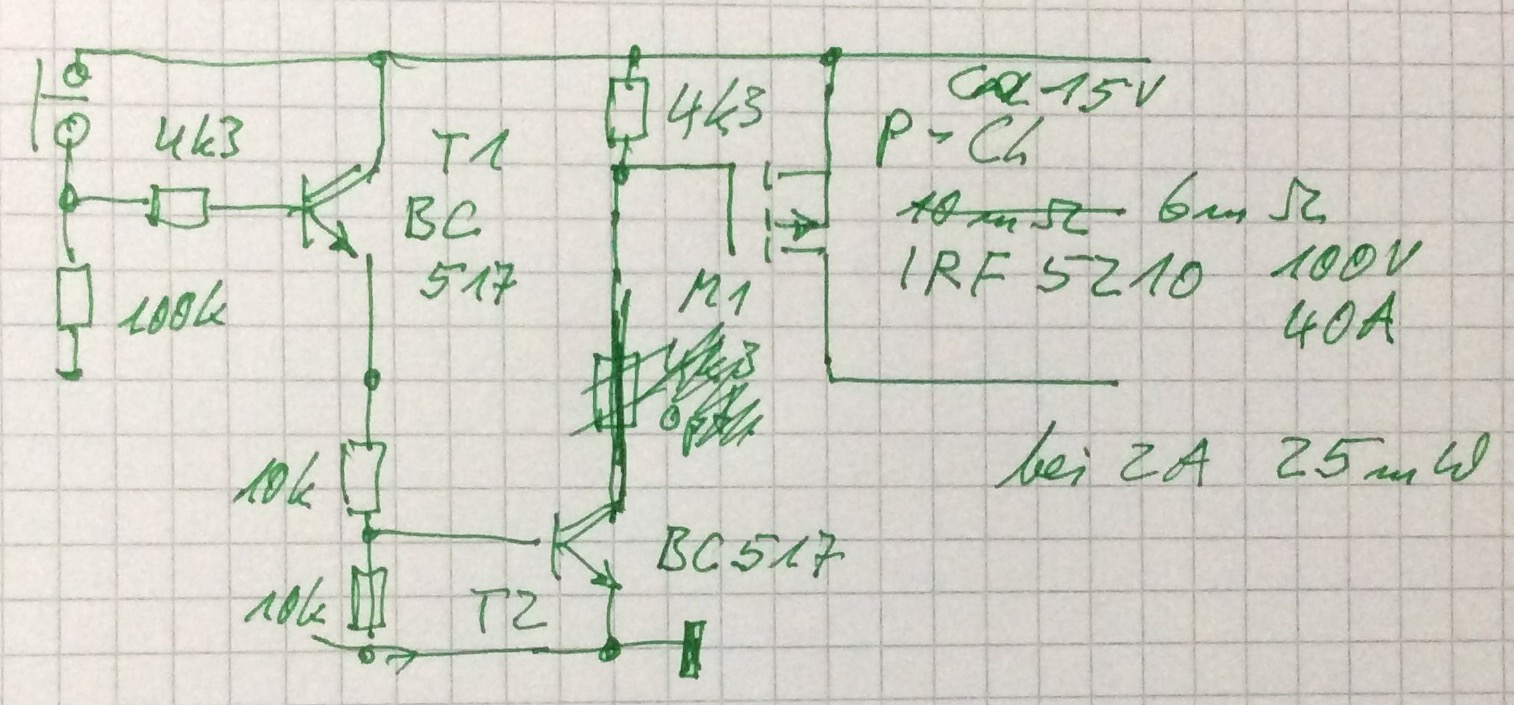 ca 15V
4k3
T1
4k3
P-Ch
BC
517
10mΩ 6mΩ
100k
M1
IRF 5210 100V
40A
4k3
opt.
10k
bei 2A 25mW
BC517
10k
T2